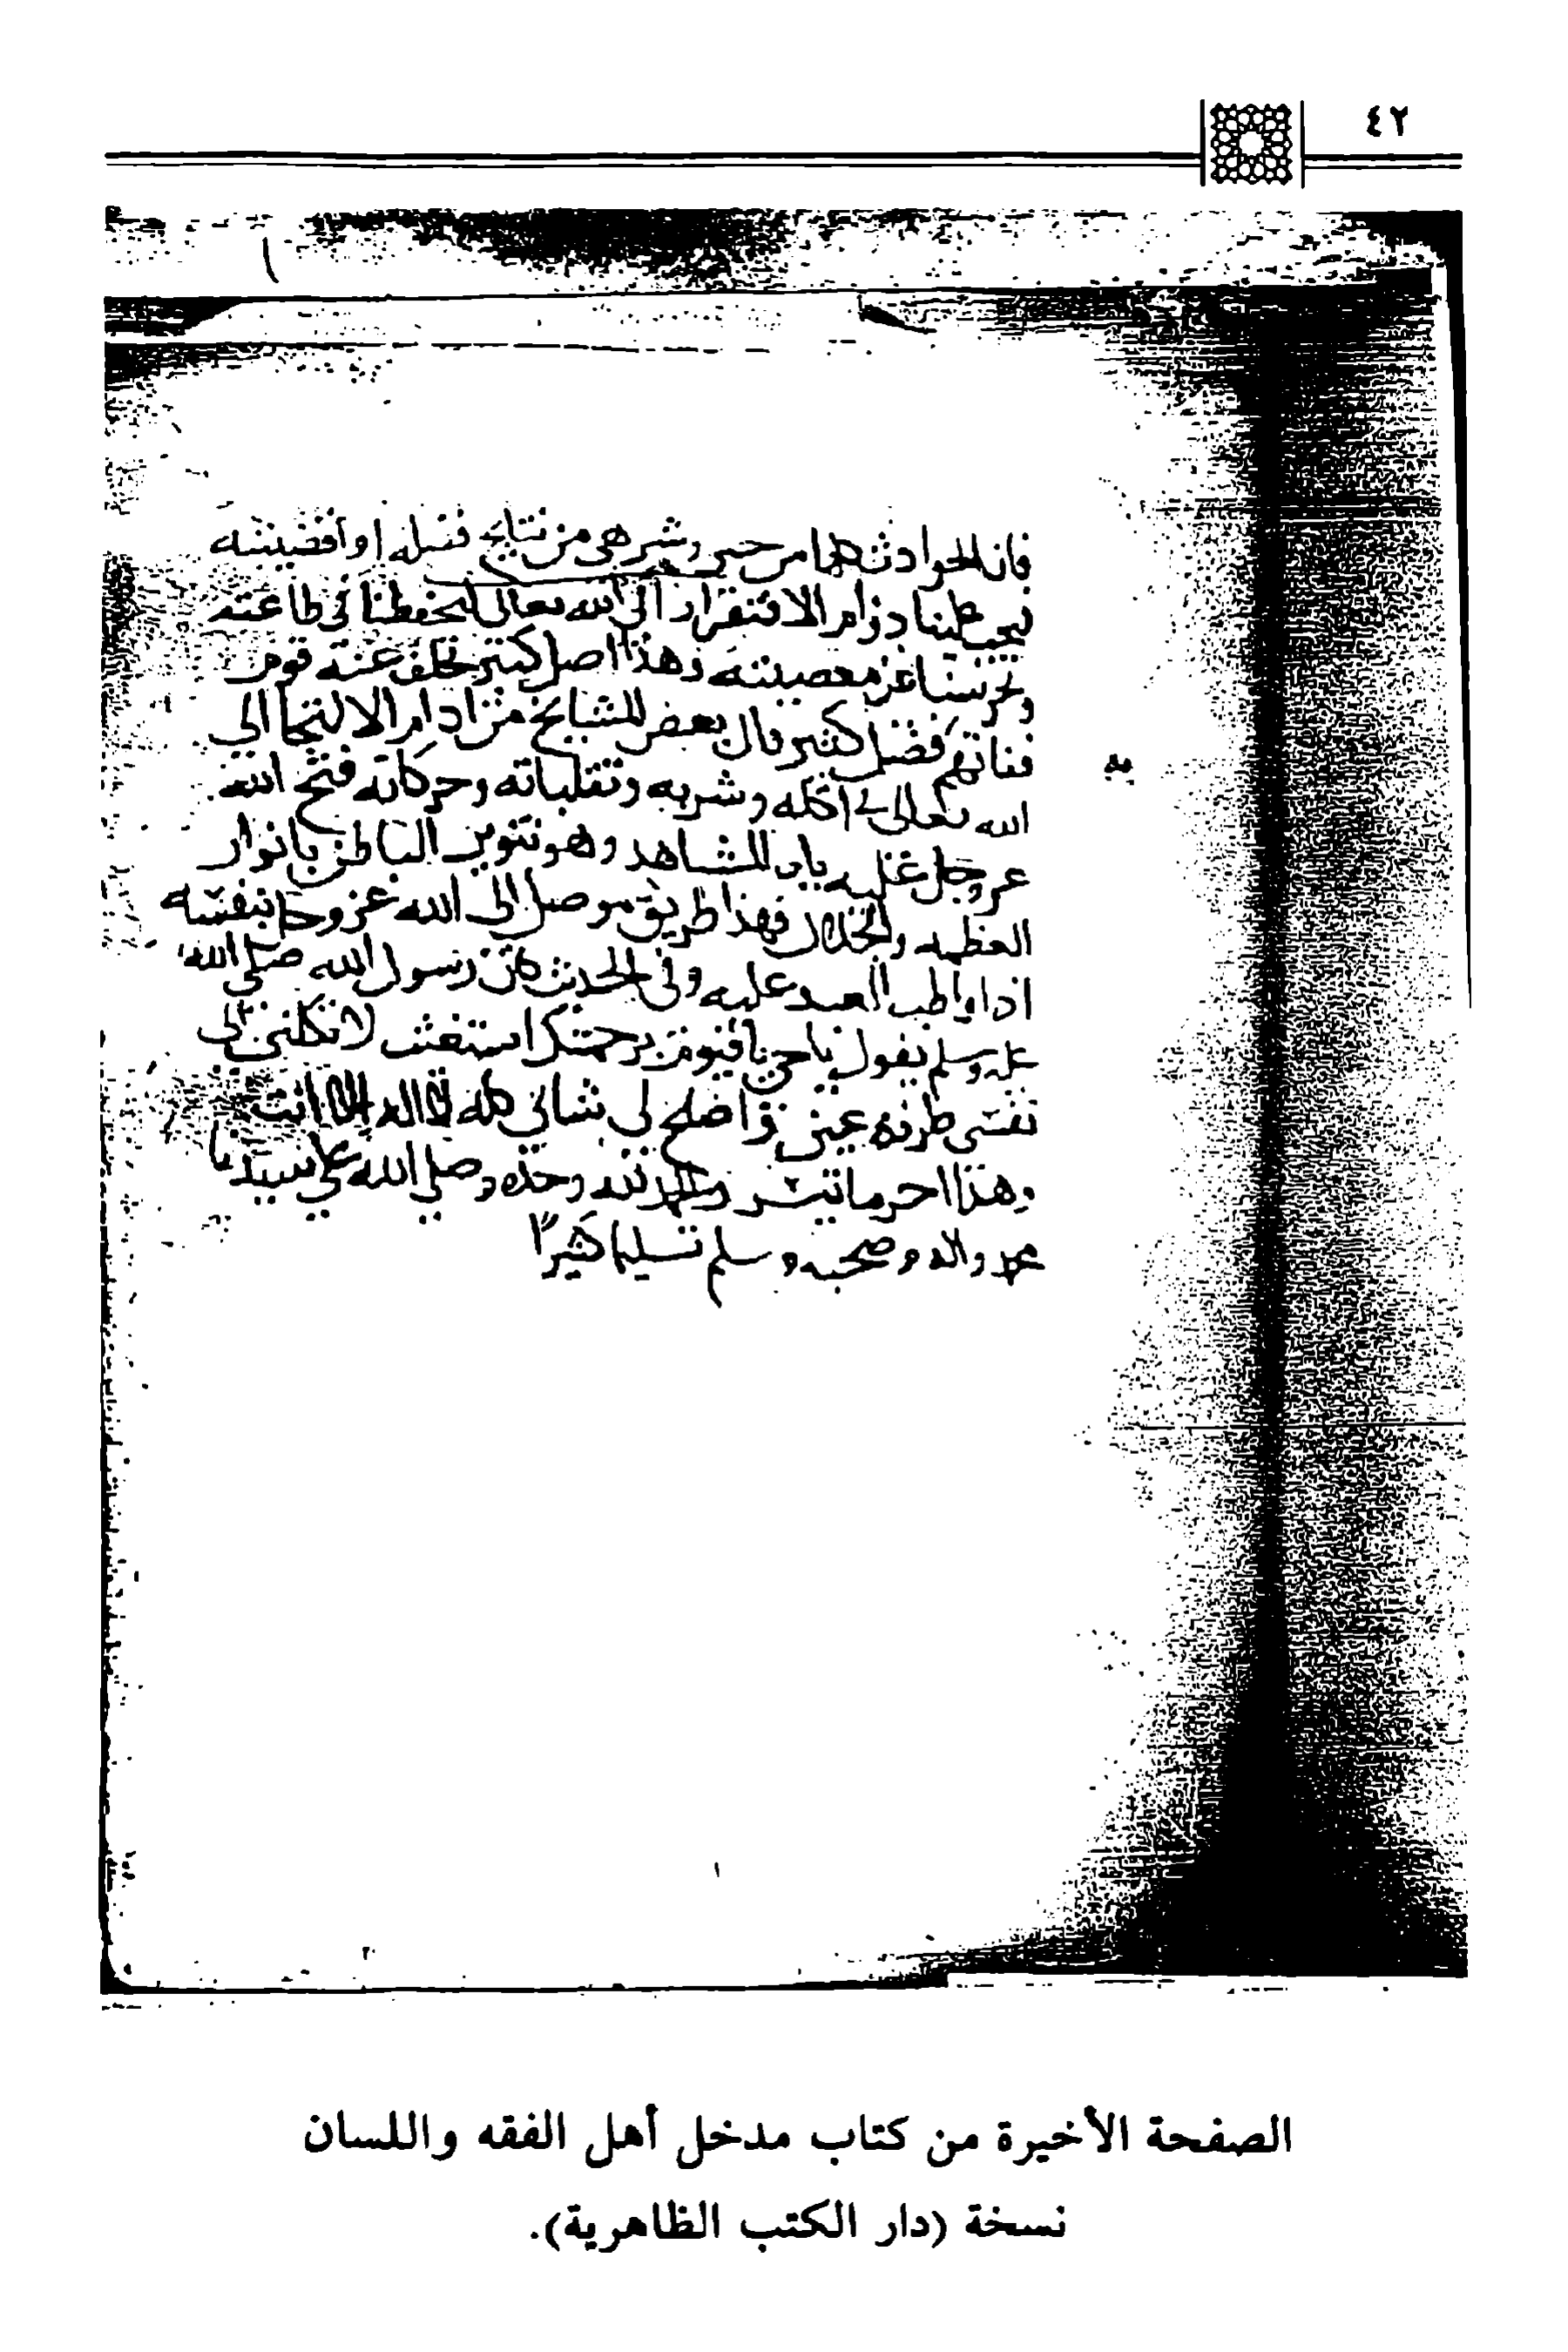 ٤٢
فان الحوادث كلها من خير وشر هي من نتايج فضله او اقضيته
فيجب علينا دوام الافتقار الى الله تعالى ليحفظنا في طاعته
ويحرسنا عن معصيته وهذا اصل كبير تخلف عنه قوم
ففاتهم فضل كثير قال بعض المشايخ من ادام الالتجا الى
الله تعالى في اكله وشربه وتقلباته وحركاته فتح الله
عز وجل عليه باب المشاهد وهو تنوير الباطن بانوار
العظمه والجلال فهذا طريق موصل الى الله عز وجل بنفسه
اذا واظب العبد عليه وفي الحديث كان رسول الله صلى الله
عليه وسلم يقول يا حي يا قيوم برحمتك استغيث لا تكلني الى
نفسي طرفة عين واصلح لي شاني كله لا اله الا انت
وهذا اخر ما تيسر والحمد لله وحده وصلى الله على سيدنا
محمد واله وصحبه وسلم تسليما كثيرًا
الصفحة الأخيرة من كتاب مدخل أهل الفقه واللسان
نسخة (دار الكتب الظاهرية).